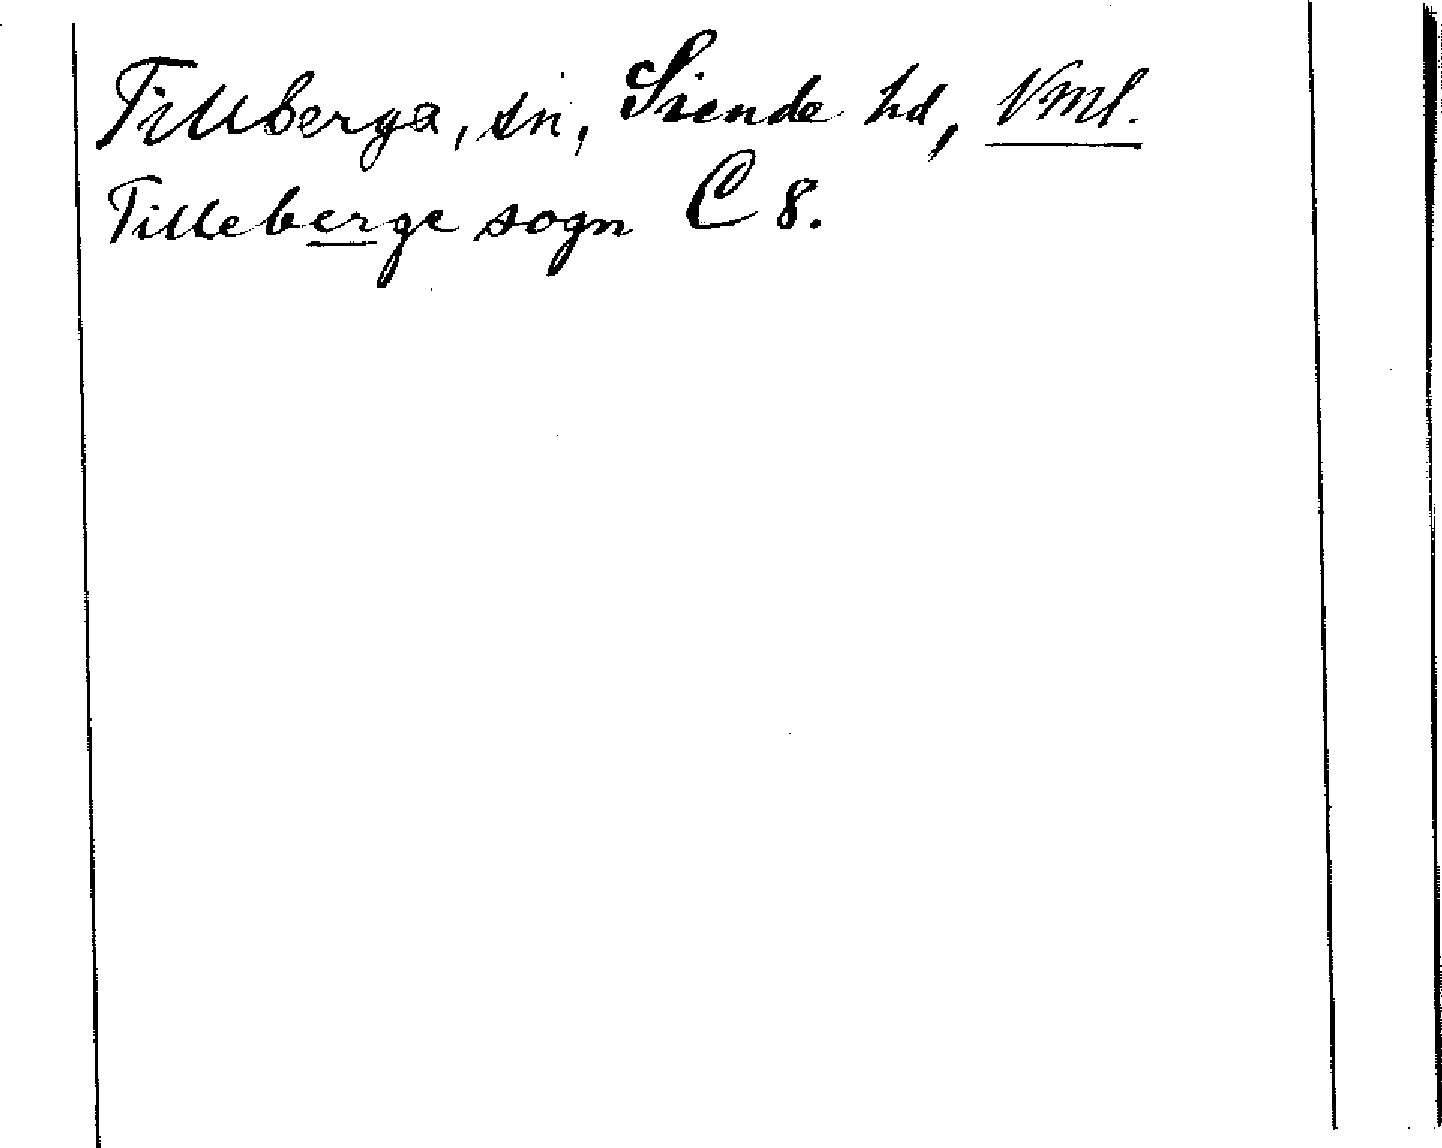 Tillberga, sn, Siende hd, Vml.
Tilleberge sogn C 8.